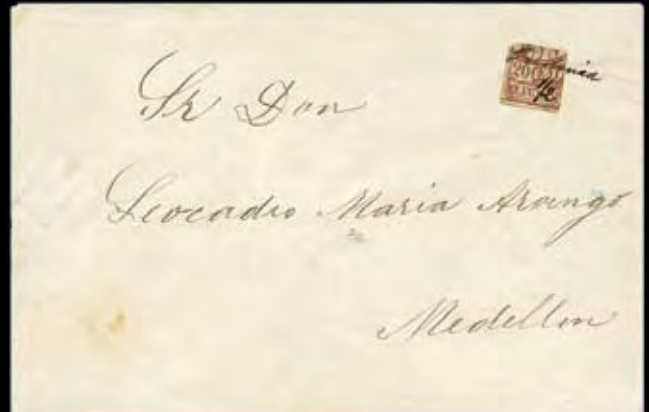 Sr Don
Leocadio Maria Arango
Medellin
20
1/2